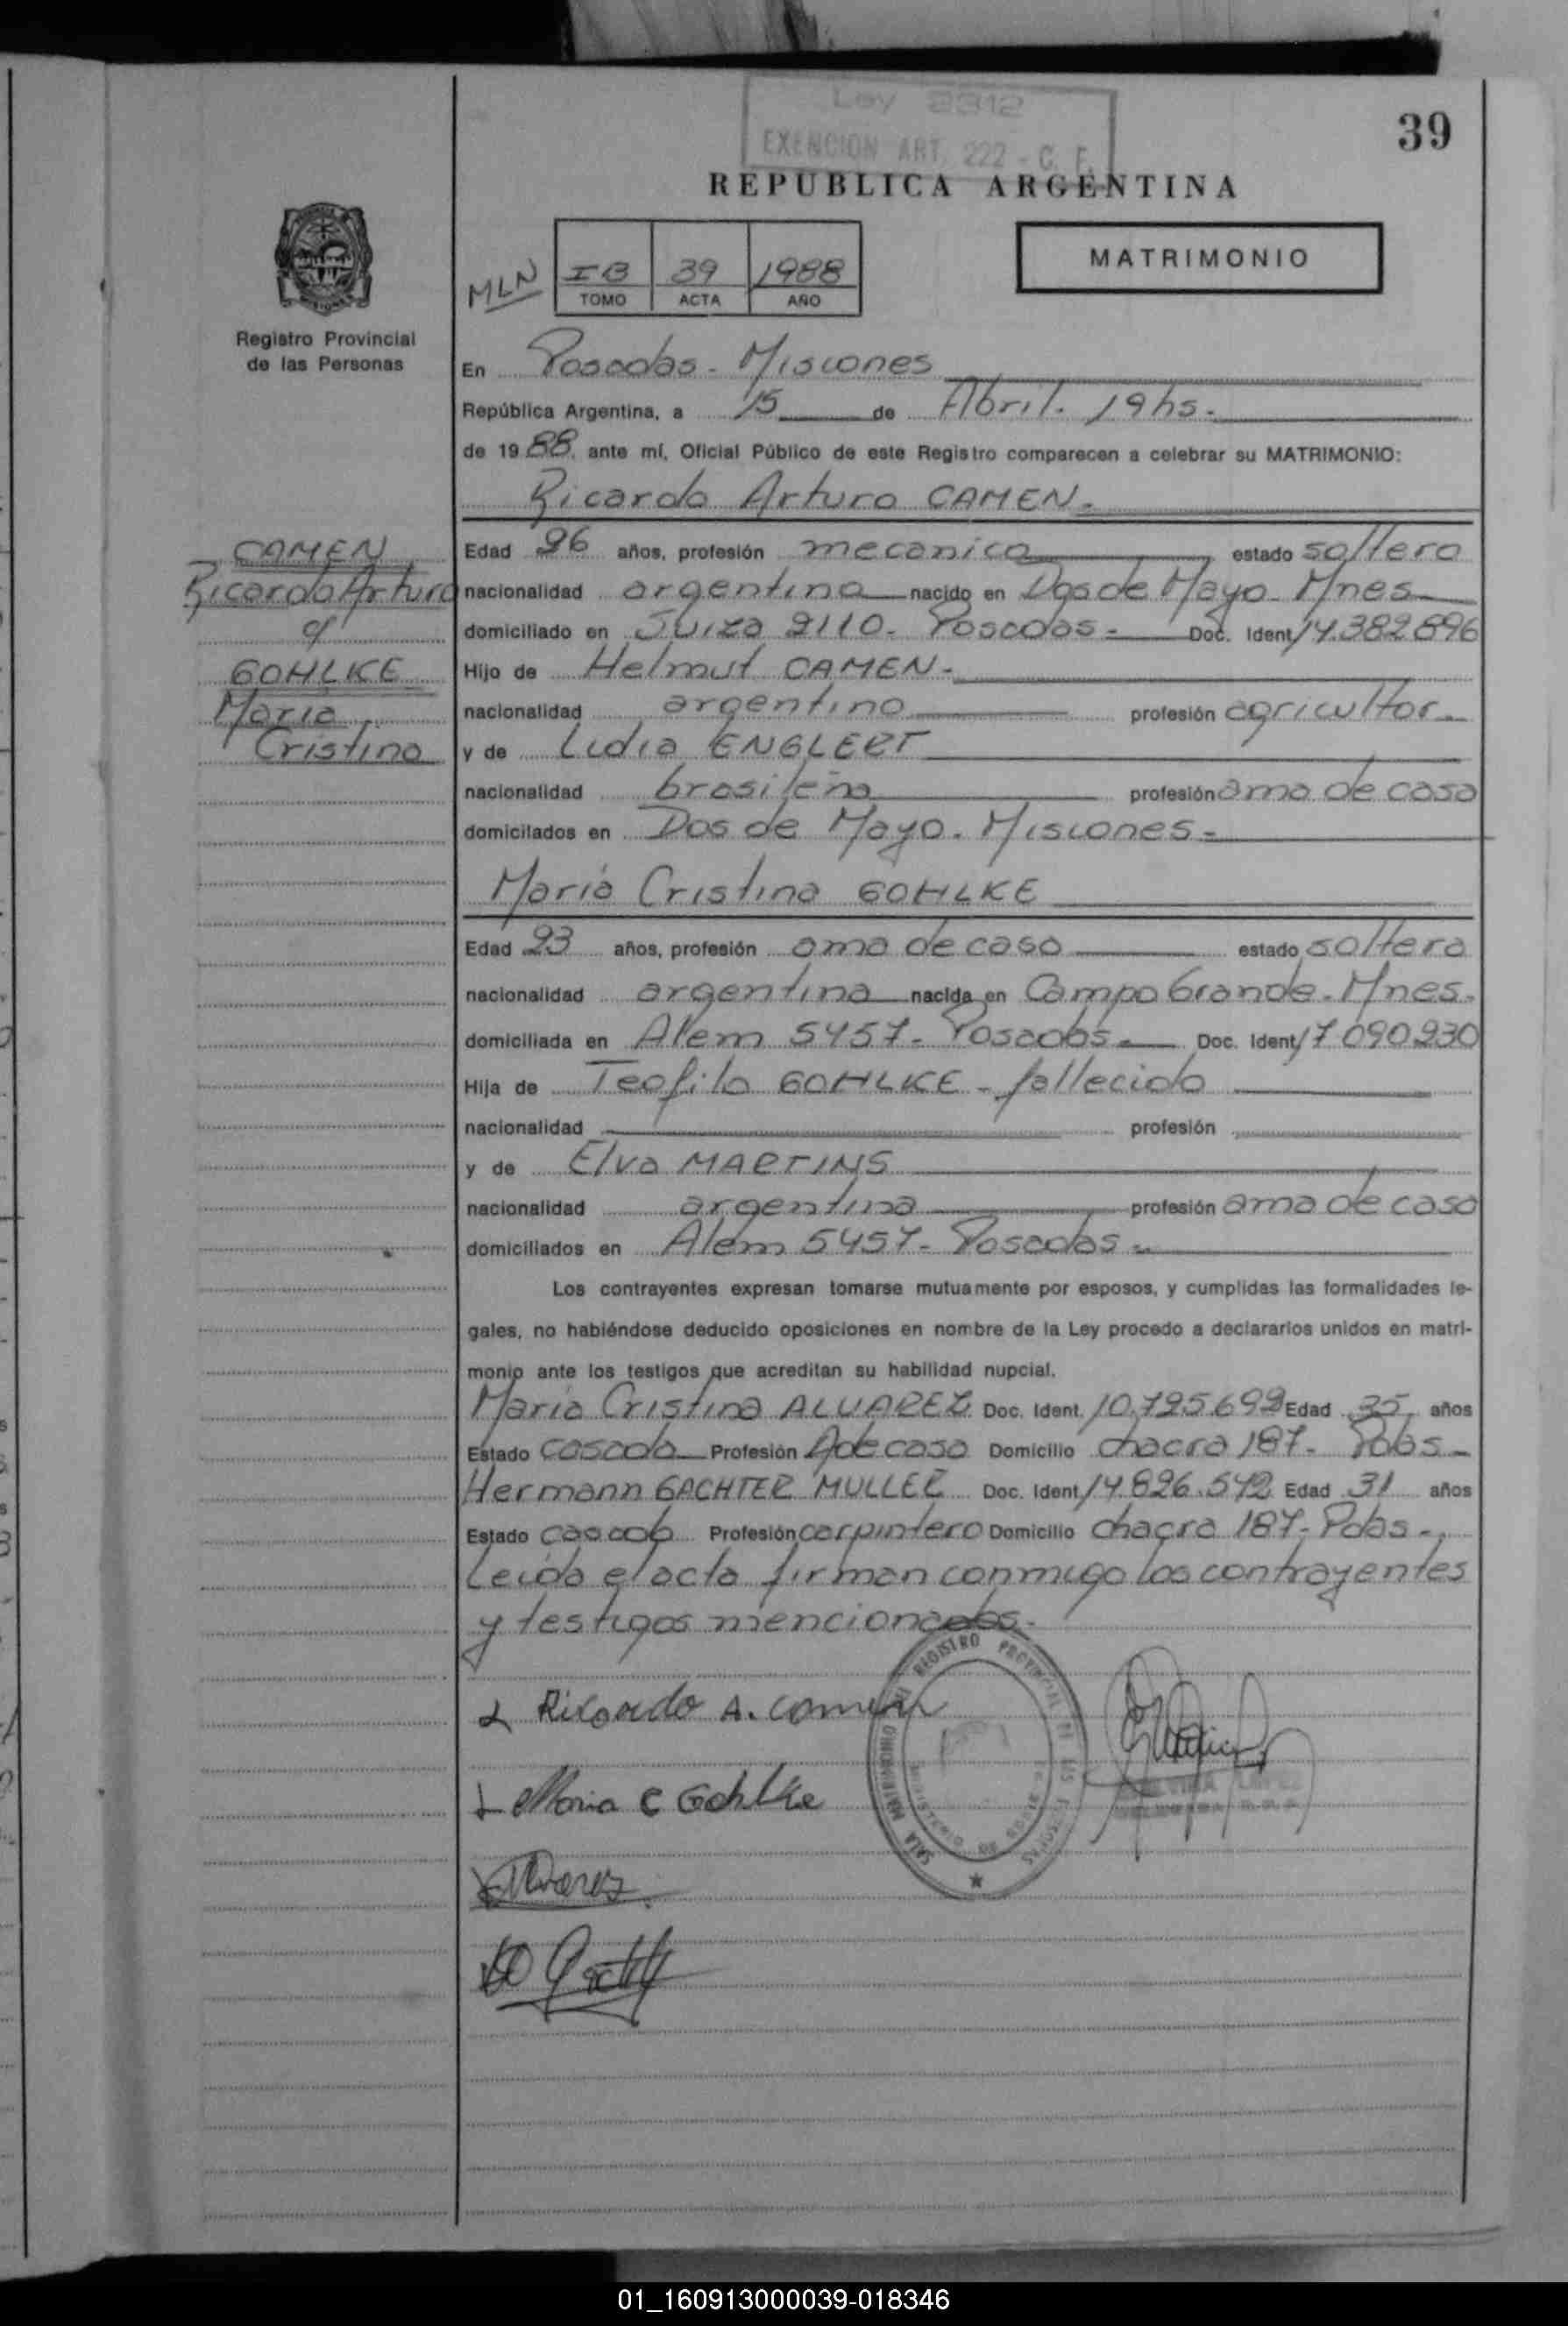 Ley 2312
EXENCION ART. 222 - C. F.
39
REPUBLICA ARGENTINA
MATRIMONIO
MLN
IB 39 1988
TOMO ACTA AÑO
Registro Provincial
de las Personas
En Posadas - Misiones
República Argentina, a 15 de Abril. 19hs.
de 1988, ante mí, Oficial Público de este Registro comparecen a celebrar su MATRIMONIO:
Ricardo Arturo CAMEN.
CAMEN
Ricardo Arturo
c/
GOHLKE
María
Cristina
Edad 26 años, profesión mecanico estado soltero
nacionalidad argentina nacido en Dos de Mayo - Mnes
domiciliado en Suiza 2110 - Posadas - Doc. Ident. 14.382896
Hijo de Helmut CAMEN -
nacionalidad argentino profesión agricultor
y de Lidia ENGLERT
nacionalidad brasileña profesión ama de casa
domicilados en Dos de Mayo - Misiones -
María Cristina GOHLKE
Edad 23 años, profesión ama de casa estado soltera
nacionalidad argentina nacida en Campo Grande - Mnes.
domiciliada en Alem 5457 - Posadas - Doc. Ident. 17090230
Hija de Teofilo GOHLKE - fallecido
nacionalidad profesión
y de Elva MARTINS
nacionalidad argentina profesión ama de casa
domiciliados en Alem 5457 - Posadas -
Los contrayentes expresan tomarse mutuamente por esposos, y cumplidas las formalidades le-
gales, no habiéndose deducido oposiciones en nombre de la Ley procedo a declararlos unidos en matri-
monio ante los testigos que acreditan su habilidad nupcial.
María Cristina ALVAREZ Doc. Ident. 10.725.692 Edad 35 años
Estado casada Profesión A de casa Domicilio chacra 187 - Pdas -
Hermann GACHTER MULLER Doc. Ident. 14.826.542 Edad 31 años
Estado casado Profesión carpintero Domicilio chacra 187 - Pdas -
Leída el acta firman conmigo los contrayentes
y testigos mencionados -
Ricardo A. Camen
Maria C Gohlke
Alvarez
REGISTRO PROVINCIAL DE LAS PERSONAS
SALA MATRIMONIO
01_160913000039-018346